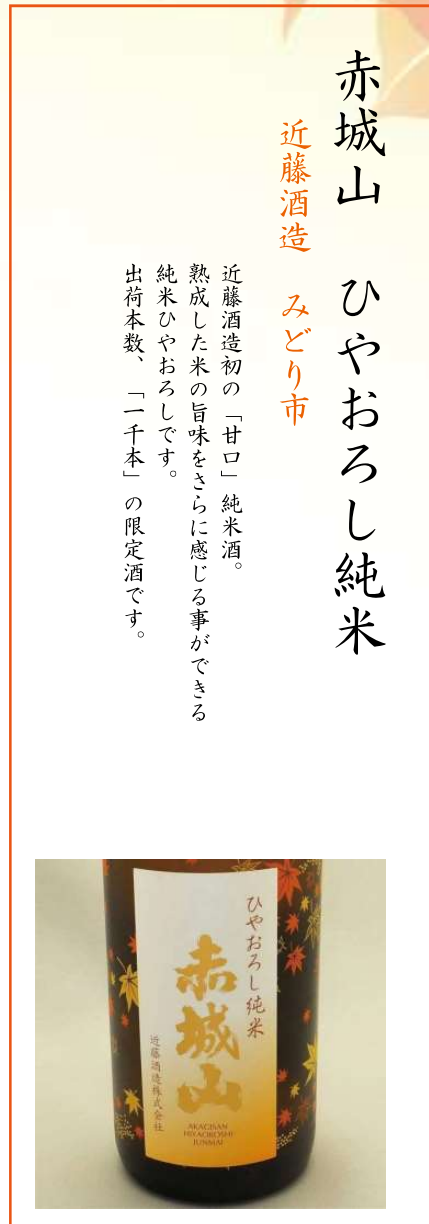 赤城山　ひやおろし純米
近藤酒造　みどり市
近藤酒造初の「甘口」純米酒。
熟成した米の旨味をさらに感じる事ができる
純米ひやおろしです。
出荷本数、「一千本」の限定酒です。
ひやおろし純米
赤城山
近藤酒造株式会社
AKAGISAN
HIYAOROSHI
JUNMAI